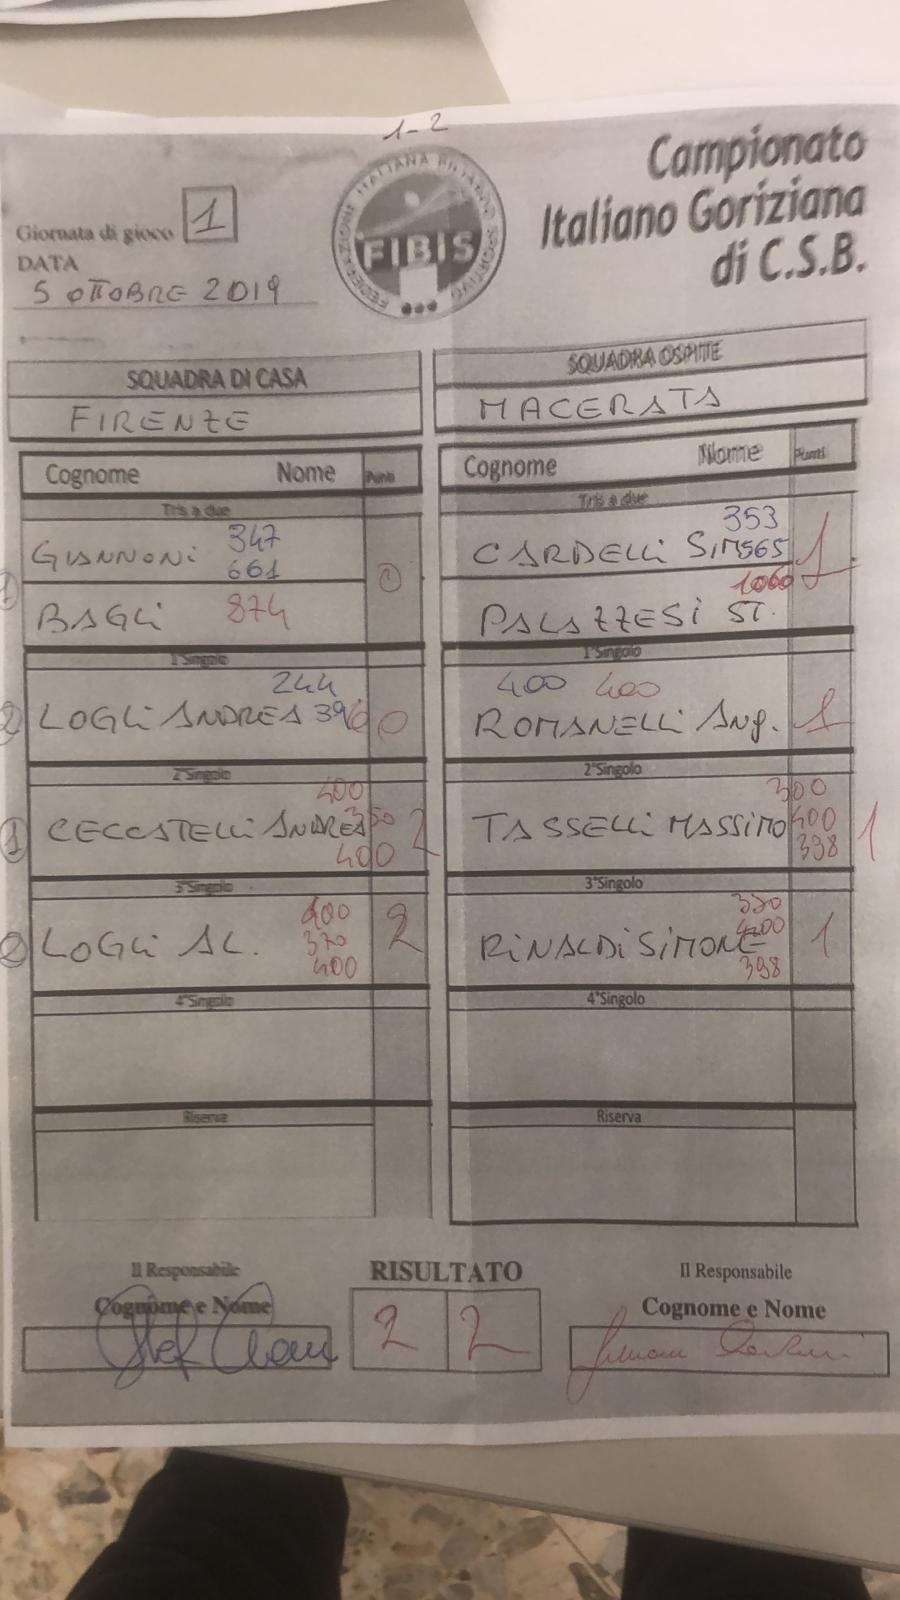 1-2
Campionato
Italiano Goriziana
di C.S.B.
Giornata di gioco 1
DATA
5 OTTOBRE 2019
FEDERAZIONE ITALIANA BILIARDO SPORTIVO
FIBIS
SQUADRA DI CASA
FIRENZE
SQUADRA OSPITE
MACERATA
Cognome Nome Punti
Tris a due
347
GIANNONI
661
0
BAGLI 874
1°Singolo
244
LOGLI ANDREA 396 0
2°Singolo
400
CECCATELLI ANDREA 350 2
400
3°Singolo
400
2
LOGLI AL. 370
400
4°Singolo
Riserva
Cognome Nome Punti
Tris a due
353
CARDELLI SIM 565 1
1000
PALAZZESI ST.
1°Singolo
400 400
ROMANELLI Ang. 1
2°Singolo
300
TASSELLI MASSIMO 400 1
398
3°Singolo
330
RINALDI SIMONE 400 1
398
4°Singolo
Riserva
Il Responsabile
Cognome e Nome
RISULTATO
2 2
Il Responsabile
Cognome e Nome